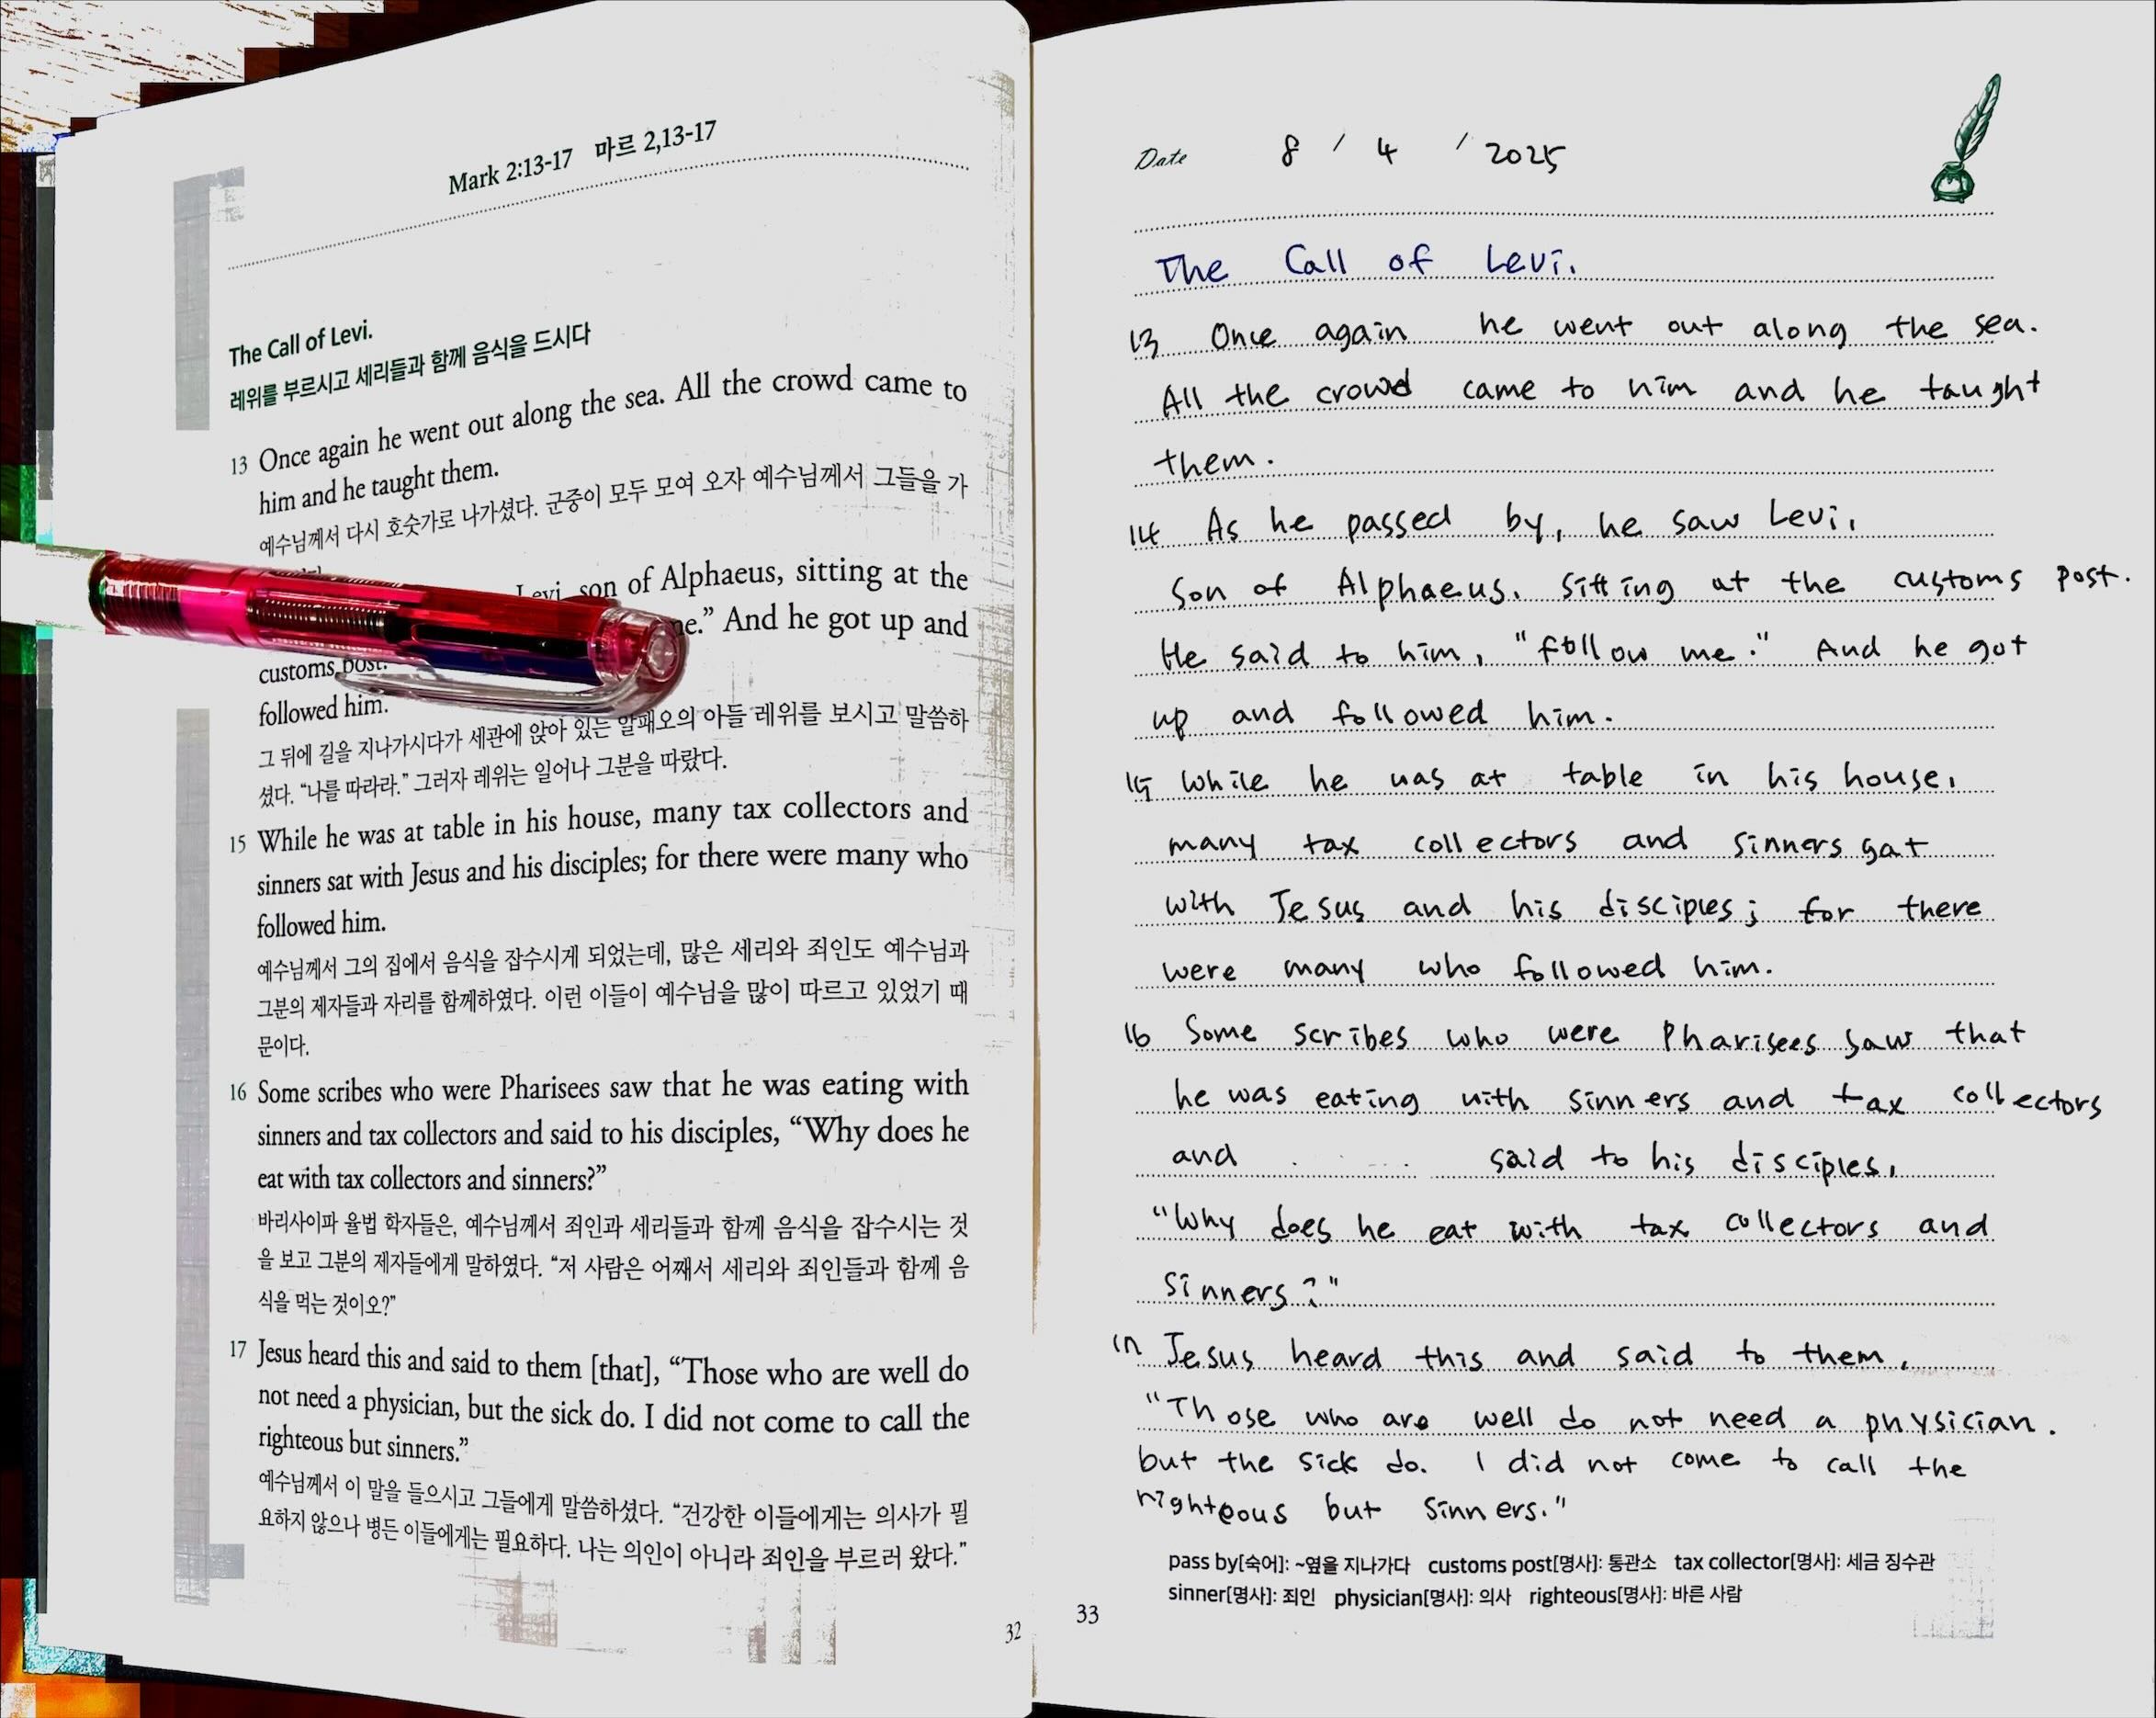 Mark 2:13-17 마르 2,13-17
The Call of Levi.
레위를 부르시고 세리들과 함께 음식을 드시다
13 Once again he went out along the sea. All the crowd came to
him and he taught them.
예수님께서 다시 호숫가로 나가셨다. 군중이 모두 모여 오자 예수님께서 그들을 가
Levi, son of Alphaeus, sitting at the
customs post. me.” And he got up and
followed him.
그 뒤에 길을 지나가시다가 세관에 앉아 있는 알패오의 아들 레위를 보시고 말씀하
셨다. “나를 따라라.” 그러자 레위는 일어나 그분을 따랐다.
15 While he was at table in his house, many tax collectors and
sinners sat with Jesus and his disciples; for there were many who
followed him.
예수님께서 그의 집에서 음식을 잡수시게 되었는데, 많은 세리와 죄인도 예수님과
그분의 제자들과 자리를 함께하였다. 이런 이들이 예수님을 많이 따르고 있었기 때
문이다.
16 Some scribes who were Pharisees saw that he was eating with
sinners and tax collectors and said to his disciples, “Why does he
eat with tax collectors and sinners?”
바리사이파 율법 학자들은, 예수님께서 죄인과 세리들과 함께 음식을 잡수시는 것
을 보고 그분의 제자들에게 말하였다. “저 사람은 어째서 세리와 죄인들과 함께 음
식을 먹는 것이오?”
17 Jesus heard this and said to them [that], “Those who are well do
not need a physician, but the sick do. I did not come to call the
righteous but sinners.”
예수님께서 이 말을 들으시고 그들에게 말씀하셨다. “건강한 이들에게는 의사가 필
요하지 않으나 병든 이들에게는 필요하다. 나는 의인이 아니라 죄인을 부르러 왔다.”
32
Date 8 / 4 / 2025
The Call of Levi.
13 Once again he went out along the sea.
All the crowd came to him and he taught
them.
14 As he passed by, he saw Levi,
Son of Alphaeus, sitting at the customs post.
He said to him, "follow me." And he got
up and followed him.
15 While he was at table in his house,
many tax collectors and sinners sat
with Jesus and his disciples; for there
were many who followed him.
16 Some scribes who were Pharisees saw that
he was eating with sinners and tax collectors
and said to his disciples,
"Why does he eat with tax collectors and
sinners?"
17 Jesus heard this and said to them,
"Those who are well do not need a physician.
but the sick do. I did not come to call the
righteous but sinners."
pass by[숙어]: ~옆을 지나가다 customs post[명사]: 통관소 tax collector[명사]: 세금 징수관
sinner[명사]: 죄인 physician[명사]: 의사 righteous[명사]: 바른 사람
33